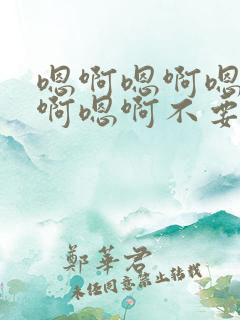 嗯啊嗯啊嗯
啊嗯啊不要
鄭華君
未经同意禁止转载